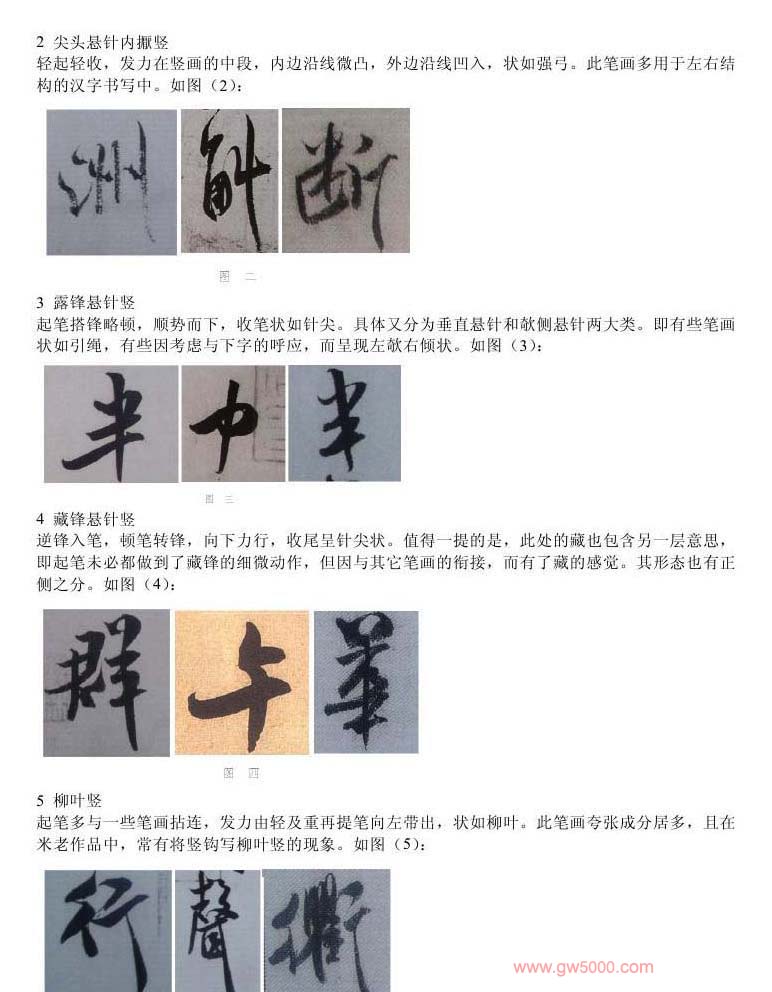 2 尖头悬针内擫竖
轻起轻收，发力在竖画的中段，内边沿线微凸，外边沿线凹入，状如强弓。此笔画多用于左右结
构的汉字书写中。如图（2）：
洲 斛 断
图 二
3 露锋悬针竖
起笔搭锋略顿，顺势而下，收笔状如针尖。具体又分为垂直悬针和欹侧悬针两大类。即有些笔画
状如引绳，有些因考虑与下字的呼应，而呈现左欹右倾状。如图（3）：
半 中 半
图 三
4 藏锋悬针竖
逆锋入笔，顿笔转锋，向下力行，收尾呈针尖状。值得一提的是，此处的藏也包含另一层意思，
即起笔未必都做到了藏锋的细微动作，但因与其它笔画的衔接，而有了藏的感觉。其形态也有正
侧之分。如图（4）：
群 午 華
图 四
5 柳叶竖
起笔多与一些笔画拈连，发力由轻及重再提笔向左带出，状如柳叶。此笔画夸张成分居多，且在
米老作品中，常有将竖钩写柳叶竖的现象。如图（5）：
行 聲
www.gw5000.com